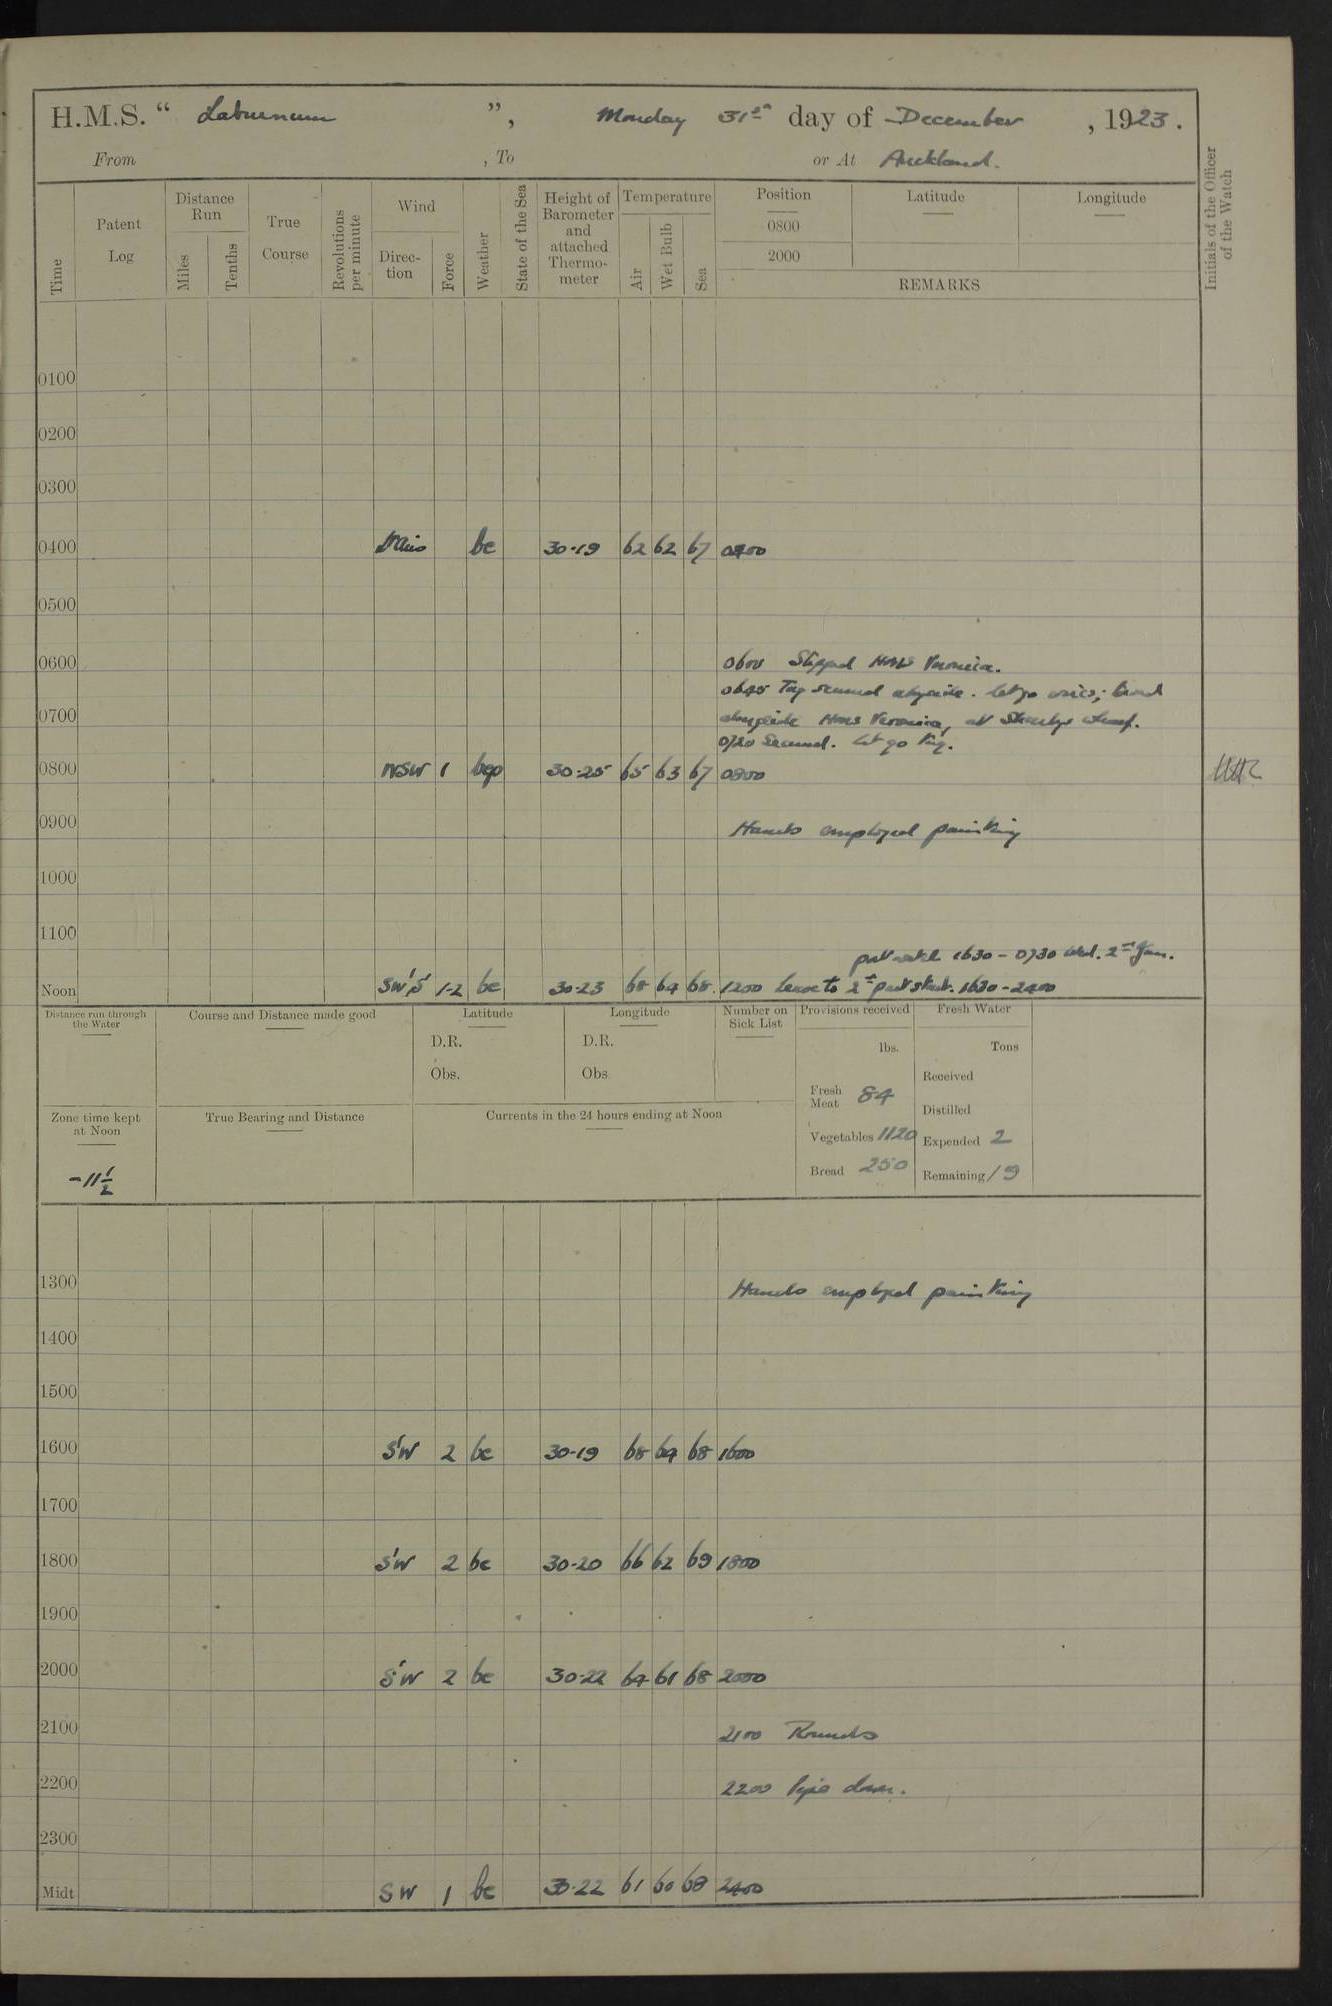 H.M.S. “ Laburnum ”, Monday 31st day of December , 1923.
From , To or At Auckland.
Time
Patent Log
Distance Run
Miles
Tenths
True Course
Revolutions per minute
Wind
Direc-tion
Force
Weather
State of the Sea
Height of Barometer and attached Thermo-meter
Temperature
Air
Wet Bulb
Sea
Position
0800
2000
Latitude
Longitude
REMARKS
Initials of the Officer of the Watch
0100
0200
0300
0400 bc 30·19 62 62 67 0400
0500
0600 0600 Slipped HMS Veronica.
0645 Tug secured alongside. let go wires;
0700 alongside HMS Veronica, at wharf.
0720 Secured. let go tug.
0800 WSW 1 bcp 30·25 65 63 67 0800
0900 Hands employed painting
1000
1100
part watch 1630 - 0730 Wed. 2nd Jan.
Noon SW'S 1-2 bc 30·23 68 64 68 1200 leave to 2nd part 1630 - 2400
Distance run through the Water
Course and Distance made good
Latitude
D.R.
Obs.
Longitude
D.R.
Obs
Number on Sick List
Provisions received
lbs.
Fresh Meat 84
Vegetables 1120
Bread 250
Fresh Water
Tons
Received
Distilled
Expended 2
Remaining 19
Zone time kept at Noon
-11 1/2
True Bearing and Distance
Currents in the 24 hours ending at Noon
1300 Hands employed painting
1400
1500
1600 S'W 2 bc 30·19 68 64 68 1600
1700
1800 S'W 2 bc 30·20 66 62 69 1800
1900
2000 S'W 2 bc 30·22 64 61 68 2000
2100 2100 Rounds
2200 2200 Pipe down.
2300
Midt SW 1 bc 30·22 61 60 68 2400